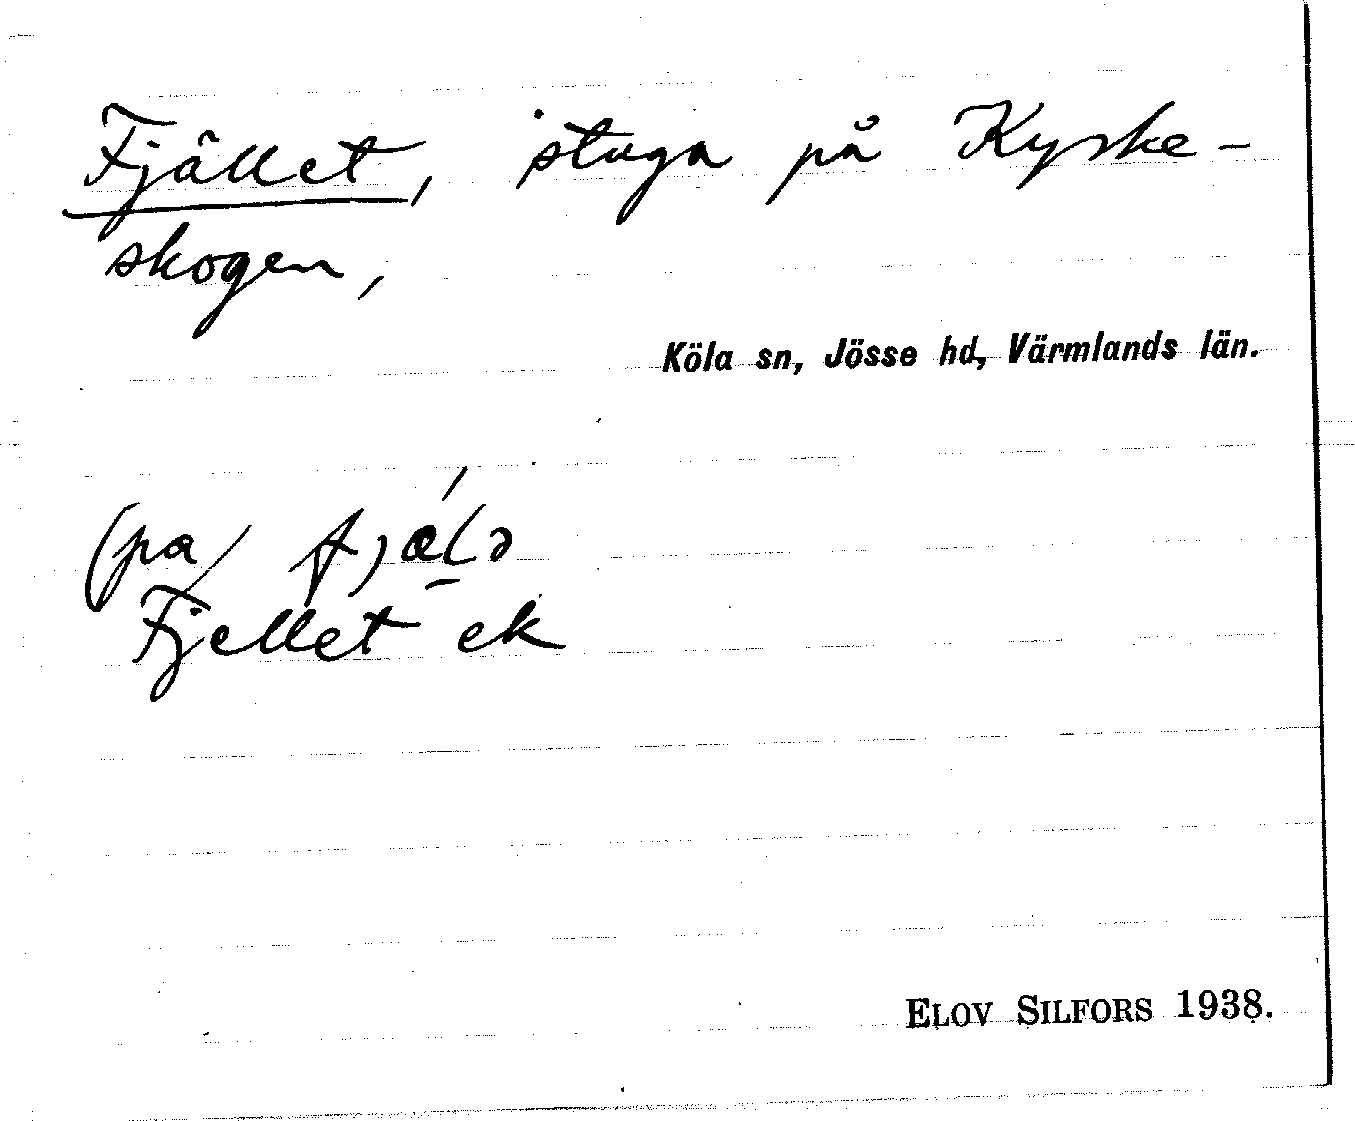 Fjället, stuga på Kyrke-
skogen,
Köla sn, Jösse hd, Värmlands län.
(pa) fjælə
Fjellet ek
ELOV SILFORS 1938.